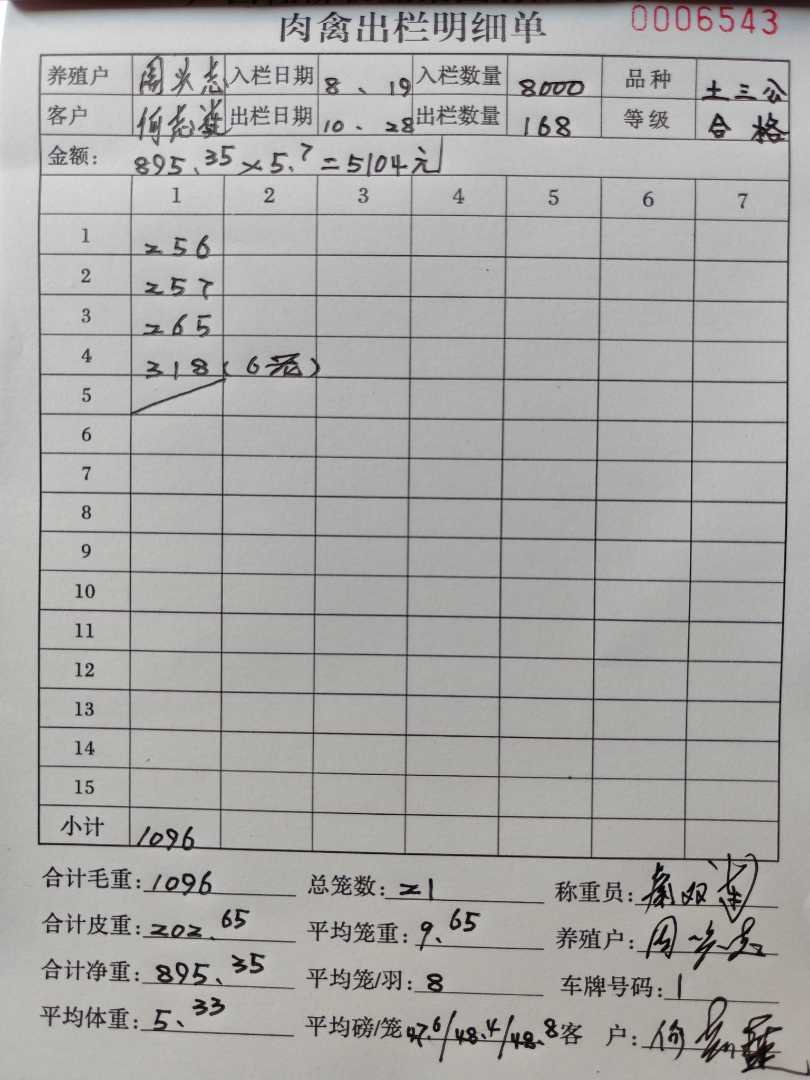 肉禽出栏明细单 0006543
养殖户 入栏日期 8、19 入栏数量 8000 品种 土三公
客户 出栏日期 10.28 出栏数量 168 等级 合格
金额: 895.35×5.7=5104元
1 2 3 4 5 6 7
1 256
2 257
3 265
4 318(6笼)
5
6
7
8
9
10
11
12
13
14
15
小计 1096
合计毛重: 1096 总笼数: 21 称重员:
合计皮重: 202.65 平均笼重: 9.65 养殖户: 周
合计净重: 895.35 平均笼/羽: 8 车牌号码: 1
平均体重: 5.33 平均磅/笼 47.6/48.4/48.8 客 户: 何